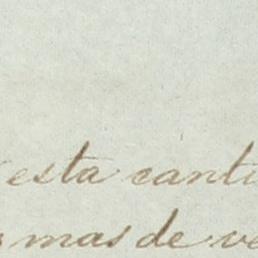 esta canti
mas de ve